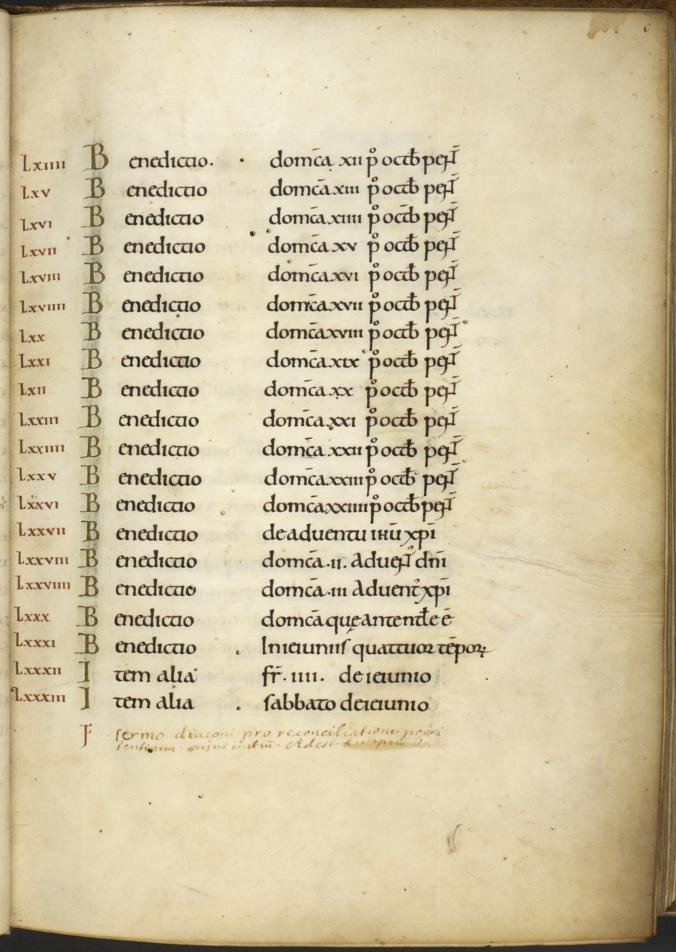 6
Lxiiii Benedictio. domc̄a xii p̊ octb̄ pent̄
Lxv Benedictio domc̄a xiii p̊ octb̄ pent̄
Lxvi Benedictio domc̄a xiiii p̊ octb̄ pent̄
Lxvii Benedictio domc̄a xv p̊ octb̄ pent̄
Lxviii Benedictio domc̄a xvi p̊ octb̄ pent̄
Lxviiii Benedictio domc̄a xvii p̊ octb̄ pent̄
Lxx Benedictio domc̄a xviii p̊ octb̄ pent̄
Lxxi Benedictio domc̄a xix p̊ octb̄ pent̄
Lxii Benedictio domc̄a xx p̊ octb̄ pent̄
Lxxiii Benedictio domc̄a xxi p̊ octb̄ pent̄
Lxxiiii Benedictio domc̄a xxii p̊ octb̄ pent̄
Lxxv Benedictio domc̄a xxiii p̊ octb̄ pent̄
Lxxvi Benedictio domc̄a xxiiii p̊ octb̄ pent̄
Lxxvii Benedictio de adventu ihū xp̄i
Lxxviii Benedictio domc̄a .ii. advent̄ dn̄i
Lxxviiii Benedictio domc̄a .iii advent̄ xp̄i
Lxxx Benedictio domc̄a que ante
Lxxxi Benedictio . In ieiuniis quattuor tēpoꝝ
Lxxxii Item alia fr̄. iiii. de ieiunio
Lxxxiii Item alia . sabbato de ieiunio
sermo diaconi pro reconciliatione
Adest